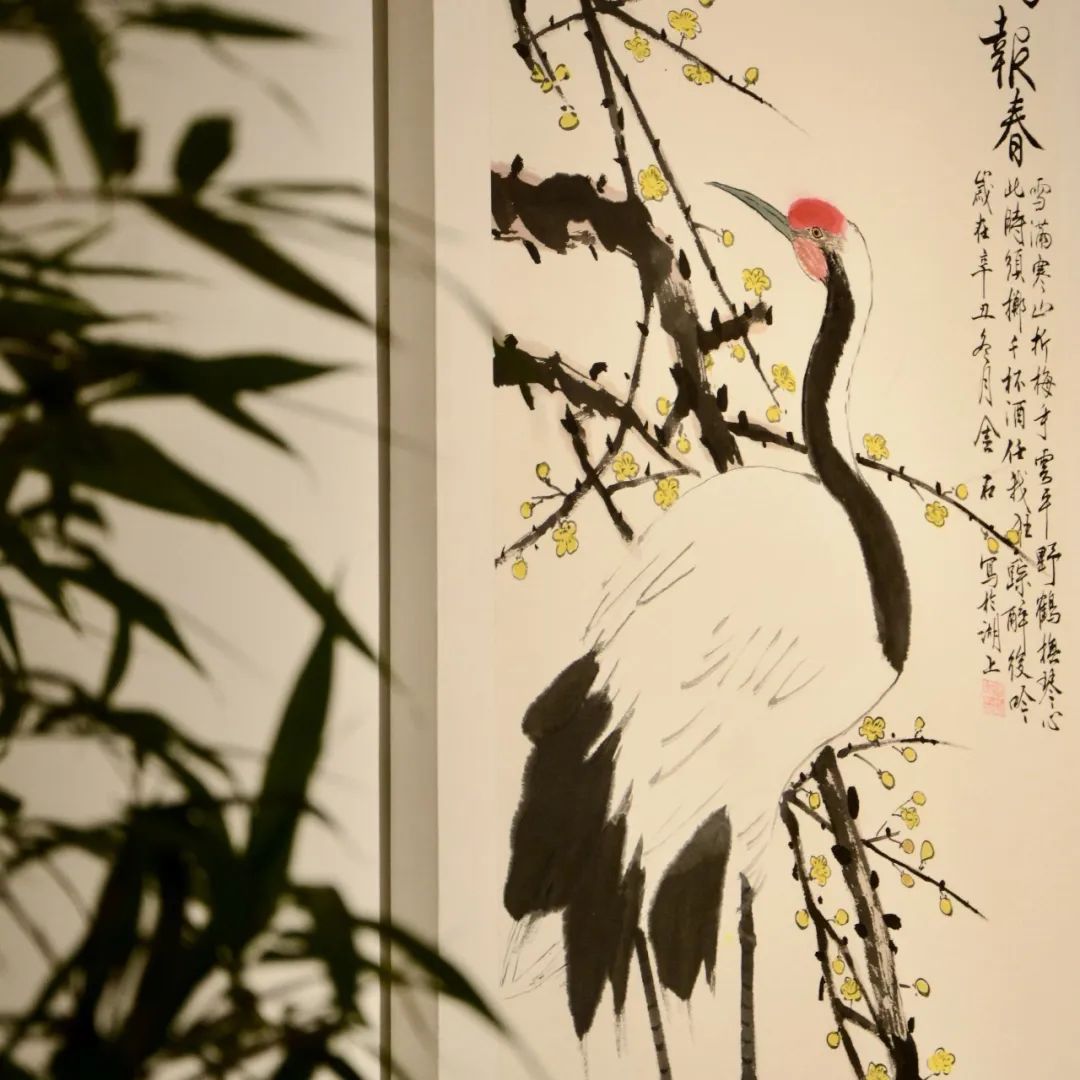 報春
雪滿寒山折梅野鶴撫琴心
此時須擲千杯酒任我狂踪醉後吟
歲在辛丑冬月金石寫於湖上